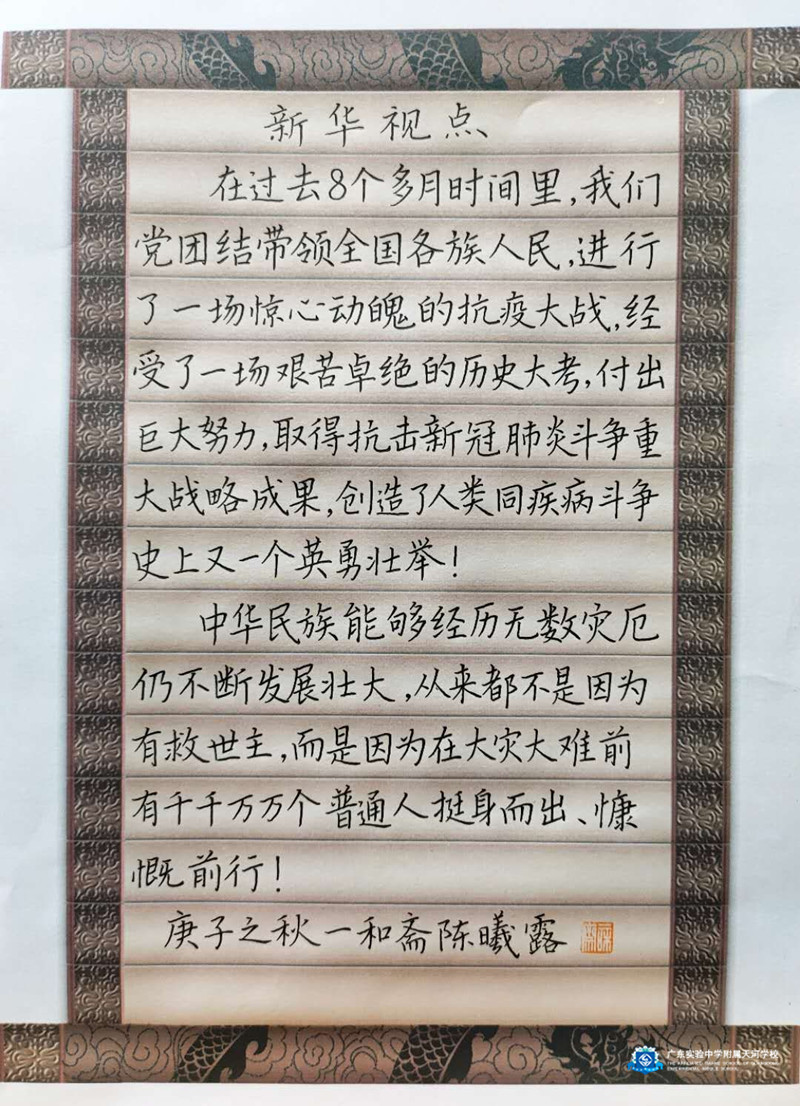 新华视点
在过去8个多月时间里,我们
党团结带领全国各族人民,进行
了一场惊心动魄的抗疫大战,经
受了一场艰苦卓绝的历史大考,付出
巨大努力,取得抗击新冠肺炎斗争重
大战略成果,创造了人类同疾病斗争
史上又一个英勇壮举!
中华民族能够经历无数灾厄
仍不断发展壮大,从来都不是因为
有救世主,而是因为在大灾大难前
有千千万万个普通人挺身而出、慷
慨前行!
庚子之秋一和斋陈曦露
广东实验中学附属天河学校